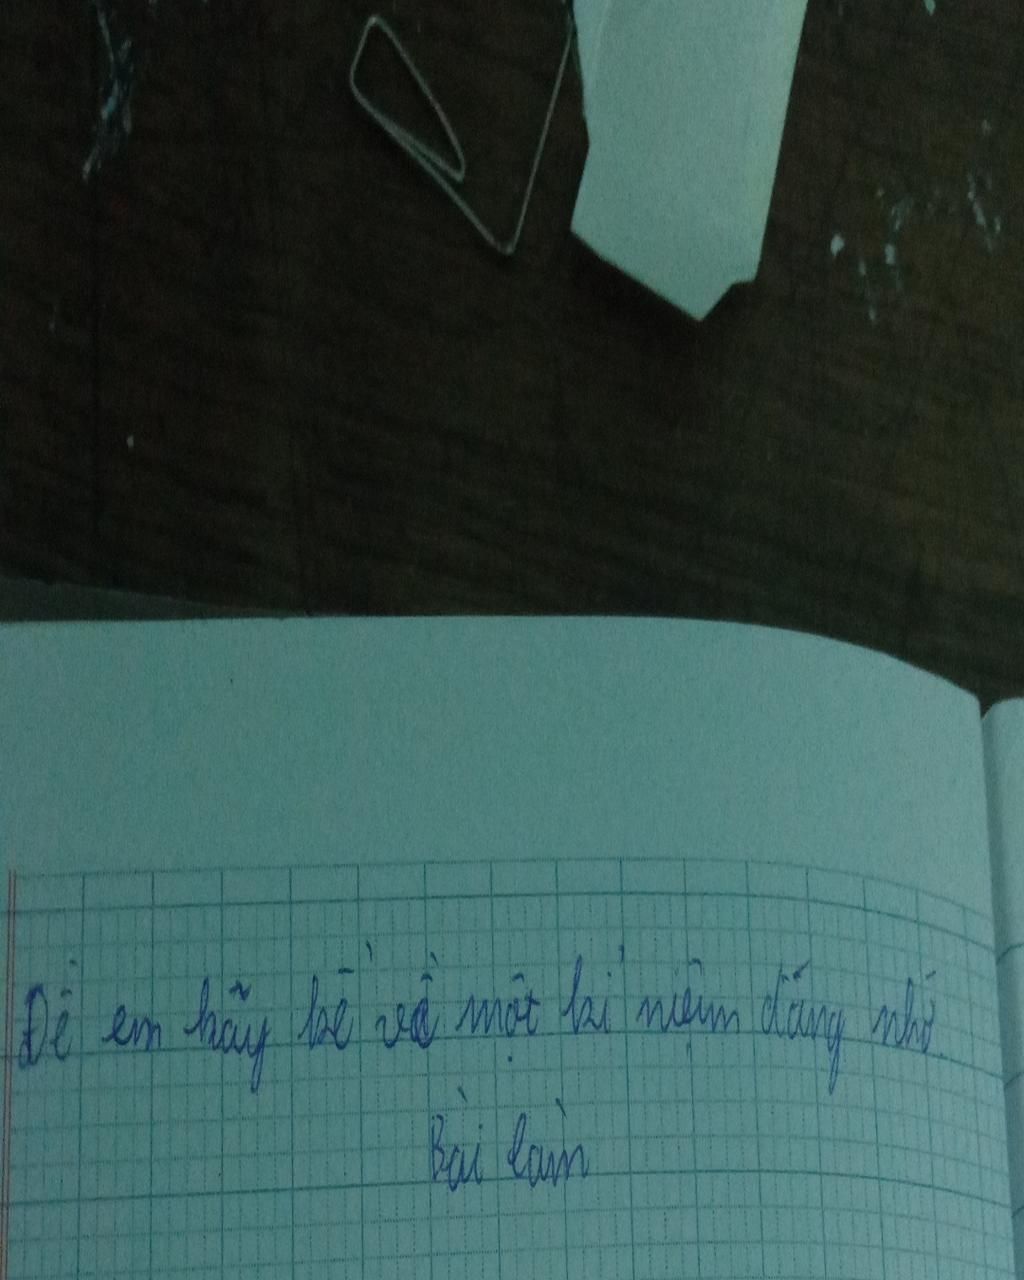 Đề em hãy kể về một kỉ niệm đáng nhớ.
Bài làm